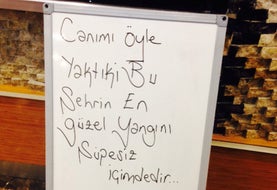 Canımı Öyle
Yaktıki Bu
Şehrin En
güzel Yangını
Şüpesiz
içimdedir...